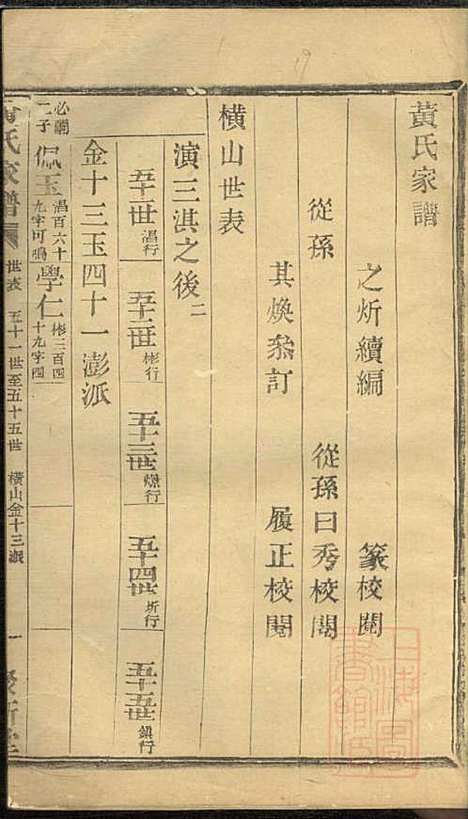 黃氏家譜
之炘續編　篆校閱
從孫　從孫曰秀校閱
其煥叅訂　履正校閱
橫山世表
演三淇之後二
五十一世淐行　五十二世彬行　五十三世㷰行　五十四世圻行　五十五世鎮行
金十三玉四十一澎派
必鵬二子佩玉淐百六十九字可鳴學仁彬三百四十九字四
黃氏家譜　世表　五十一世至五十五世　橫山金十三派　一
上海圖書館藏